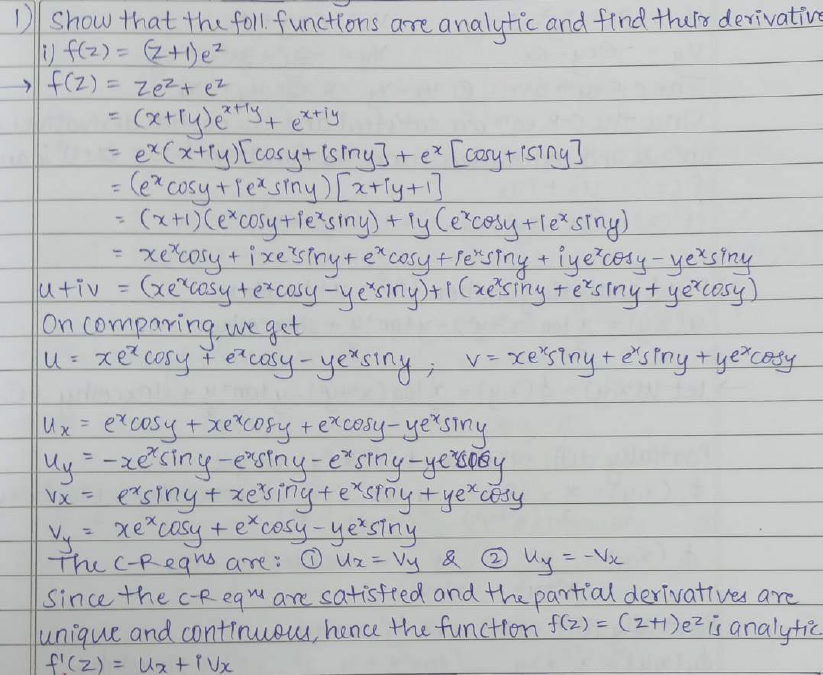 1) Show that the foll. functions are analytic and find their derivative
i) f(z) = (z+1)e^z
→ f(z) = ze^z + e^z
= (x+iy)e^{x+iy} + e^{x+iy}
= e^x(x+iy)[cosy+isiny] + e^x[cosy+isiny]
= (e^x cosy + ie^x siny)[x+iy+1]
= (x+1)(e^x cosy+ie^x siny) + iy(e^x cosy+ie^x siny)
= xe^x cosy + ixe^x siny + e^x cosy + ie^x siny + iye^x cosy - ye^x siny
u+iv = (xe^x cosy + e^x cosy - ye^x siny) + i(xe^x siny + e^x siny + ye^x cosy)
On comparing, we get
u = xe^x cosy + e^x cosy - ye^x siny ; v = xe^x siny + e^x siny + ye^x cosy
u_x = e^x cosy + xe^x cosy + e^x cosy - ye^x siny
u_y = -xe^x siny - e^x siny - e^x siny - ye^x cosy
v_x = e^x siny + xe^x siny + e^x siny + ye^x cosy
v_y = xe^x cosy + e^x cosy - ye^x siny
The C-R eqns are : ① u_x = v_y & ② u_y = -v_x
Since the C-R eqns are satisfied and the partial derivatives are
unique and continuous, hence the function f(z) = (z+1)e^z is analytic.
f'(z) = u_x + iv_x